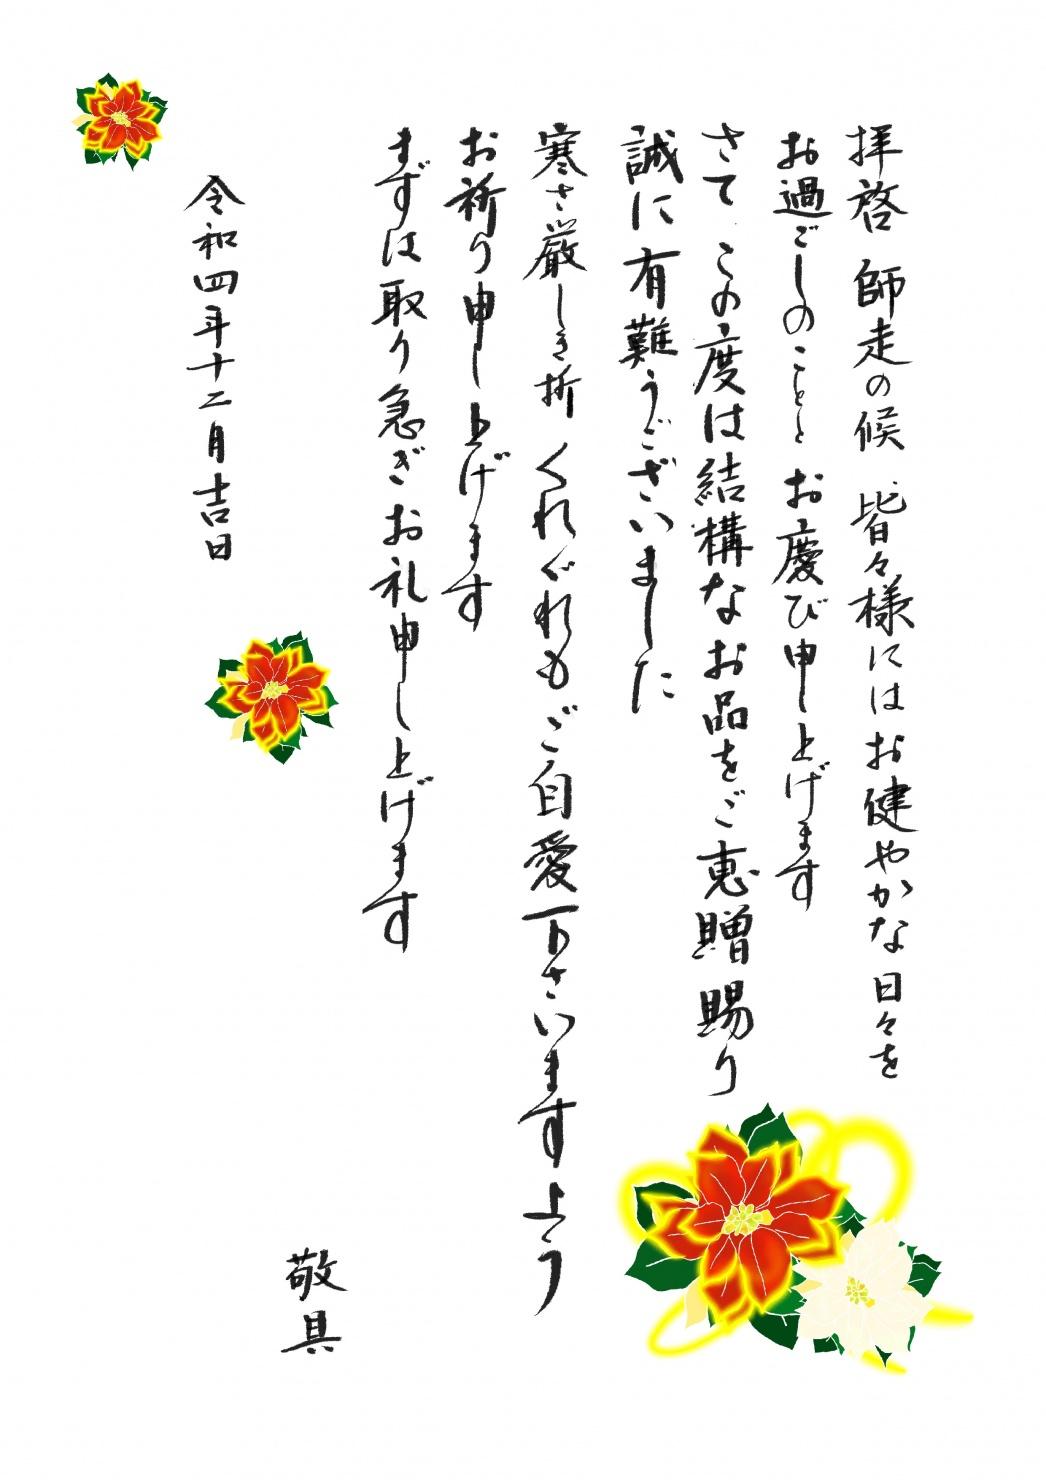 拝啓 師走の候 皆々様にはお健やかな日々を
お過ごしのことと お慶び申し上げます
さて この度は結構なお品をご恵贈賜り
誠に有難うございました
寒さ厳しき折 くれぐれもご自愛下さいますよう
お祈り申し上げます
まずは取り急ぎお礼申し上げます
敬具
令和四年十二月吉日